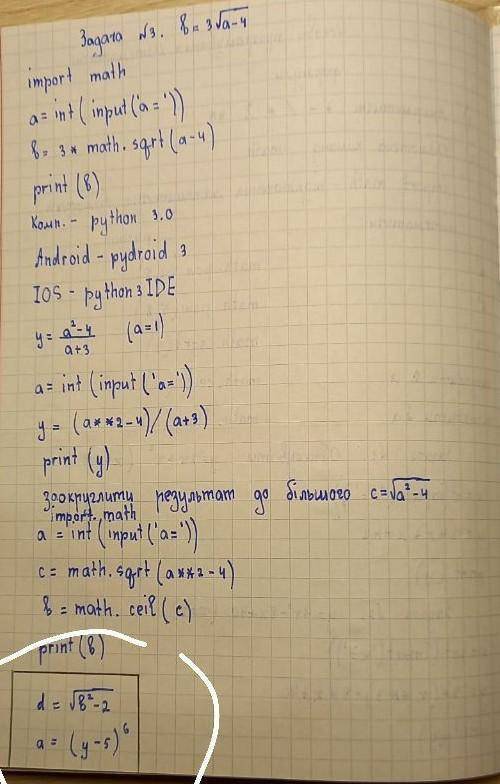 Задача №3. b = 3√a-4
import math
a = int ( input ('a = '))
b = 3 * math. sqrt (a-4)
print (b)
Комп. - python 3.0
Android - pydroid 3
IOS - python 3 IDE
y = a²-4 / a+3 (a=1)
a = int (input ('a = '))
y = (a**2-4)/(a+3)
print (y)
заокруглити результат до більшого c=√a²-4
import math
a = int (input ('a= '))
c = math.sqrt (a**2-4)
b = math. ceil (c)
print (b)
d = √b²-2
a = (y-5)⁶